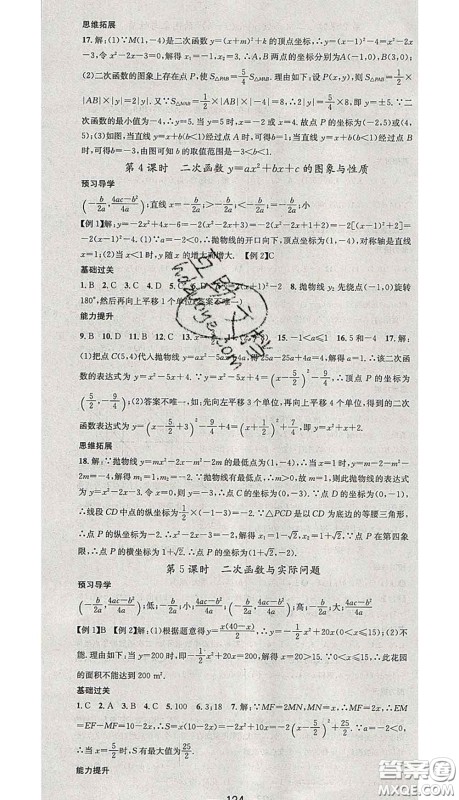 思维拓展
17. 解：(1)∵M(1，-4)是二次函数 y=(x+m)²+k 的顶点坐标，∴y=(x-1)²-4=x²-2x
-3，令 x²-2x-3=0，解得 x₁=-1，x₂=3. ∴A，B 两点的坐标分别为A(-1，0)，B(3，0)；
(2)二次函数的图象上存在点 P，使 S△PAB=5/4 S△MAB. 理由如下：设 P(x，y)，则 S△PAB=1/2×
|AB|×|y|=2|y|. 又∵S△MAB=1/2|AB|×|-4|=8，∴2|y|=5/4×8，即 y=±5. ∵二次
函数的最小值为-4，∴y=5. 当 y=5 时，x=-2 或 x=4. 故点 P 的坐标为(-2，5)或(4，
5)；(3)如图，当直线 y=x+b(b<1)经过点 A 时，可得 b=1，当直线 y=x+b(b<1)经过点 B
时，可得 b=-3，由图可知 b 的取值范围是-3<b<1.
第 4 课时 二次函数 y=ax²+bx+c 的图象与性质
预习导学
(-b/2a，4ac-b²/4a)；直线 x=-b/2a；>-b/2a；<-b/2a；小
【例 1】解：y=-2x²+4x-6=-2(x²-2x+3)=-2(x²-2x+1-1+3)=-2[(x-1)²+2]=
-2(x-1)²-4. (1)∵a=-2<0，∴抛物线的开口向下，顶点坐标为(1，-4)，对称轴是直线
x=1；(2)当 x<1 时，y 随 x 的增大而增大. 【例 2】C
基础过关
1. B 2. C 3. C 4. D 5. B 6. C 7. y=-(x+1)²-2 8. 抛物线 y₂ 先绕点(-1，0)旋转
180°，然后再向上平移 1 个单位(答案不唯一)
能力提升
9. B 10. D 11. D 12. C 13. B 15. -1<a≤1 16. 5 和-4 17. 解：
(1)把点 C(5，4)代入抛物线 y=ax²-5ax+4a，得 25a-25a+4a=4，解得 a=1. ∴该二次
函数的表达式为 y=x²-5x+4. ∵y=x²-5x+4=(x-5/2)²-9/4，∴顶点 P 的坐标为
(5/2，-9/4)；(2)答案不唯一，如：先向左平移 3 个单位，再向上平移 4 个单位，得到的二次
函数表达式为 y=(x-5/2+3)²-9/4+4=(x+1/2)²+7/4，即 y=x²+x+2.
思维拓展
18. 解：∵抛物线 y=mx²-2x-m²-2m 的最低点为(1，-4)，∴当 x=1 时，y=m-2-m²-
2m=-4，解得 m₁=1，m₂=-2. ∵抛物线有最低点，∴m>0，故 m=1，则此抛物线的表达式
为 y=x²-2x-3，令 x=0，则 y=-3. ∴点 C 的坐标为(0，-3). ∵点 D 的坐标为(0，-1)，
∴线段 CD 中点的纵坐标为-1/2×(1+3)=-2. ∵△PCD 是以 CD 为底的等腰三角形，∴
点 P 的纵坐标为-2. ∴x²-2x-3=-2，解得 x₁=1-√2，x₂=1+√2. ∵点 P 在第四象
限，∴点 P 的横坐标为 1+√2. ∴点 P 的坐标为(1+√2，-2).
第 5 课时 二次函数与实际问题
预习导学
(-b/2a，4ac-b²/4a)；低；-b/2a；小；4ac-b²/4a；(-b/2a，4ac-b²/4a)；高；-b/2a；大；4ac-b²/4a
【例 1】B 【例 2】解：(1)根据题意得 y=x(40-x)/2，∴y=-1/2x²+20x(0<x≤15)；(2)不
能. 理由如下：当 y=200 时，即-1/2x²+20x=200，解得 x=20. ∵0<x≤15，∴此花园
的面积不能达到 200 m².
基础过关
1. C 2. A 3. C 4. C 5. 100 6. 3；18 7. 解：∵MF=2MN=2x，∴ME=MF=2x，∴EM
EF-MF=S=10-2x，∴S=x(10-2x)=-2x²+10x=-2(x-5/2)²+25/2. ∵-2<0，
∴当 x=5/2 时，S 有最大值为25/2.
能力提升
答案圈
MXQE.COM